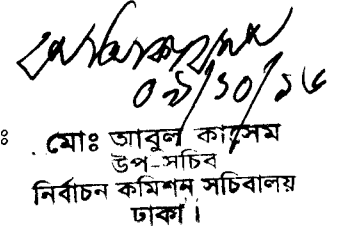 ০৯/১০/১৬
ঃ মোঃ আবুল কাসেম
উপ-সচিব
নির্বাচন কমিশন সচিবালয়
ঢাকা।